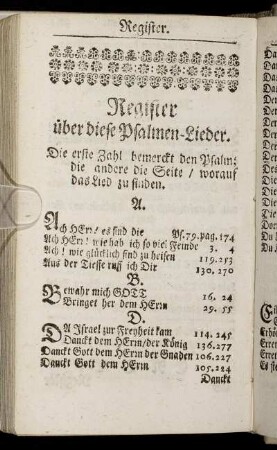 Register.
Register
über diese Psalmen-Lieder.
Die erste Zahl bemerckt den Psalm:
die andere die Seite / worauf
das Lied zu finden.
A.
Ach HErr! es sind die Ps. 79. pag. 174
Ach HErr! wie hab ich so viel Feinde 3. 4
Ach! wie glücklich sind zu heisen 119.253
Aus der Tieffe ruff ich Dir 130. 270
B.
Bewahr mich GOTT 16. 24
Bringet her dem HErrn 29. 55
D.
DA Israel zur Freyheit kam 114. 245
Danckt dem HErrn/der König 136.277
Danckt Gott dem HErrn der Gnaden 106.227
Danckt Gott dem HErrn 105.224
Danckt